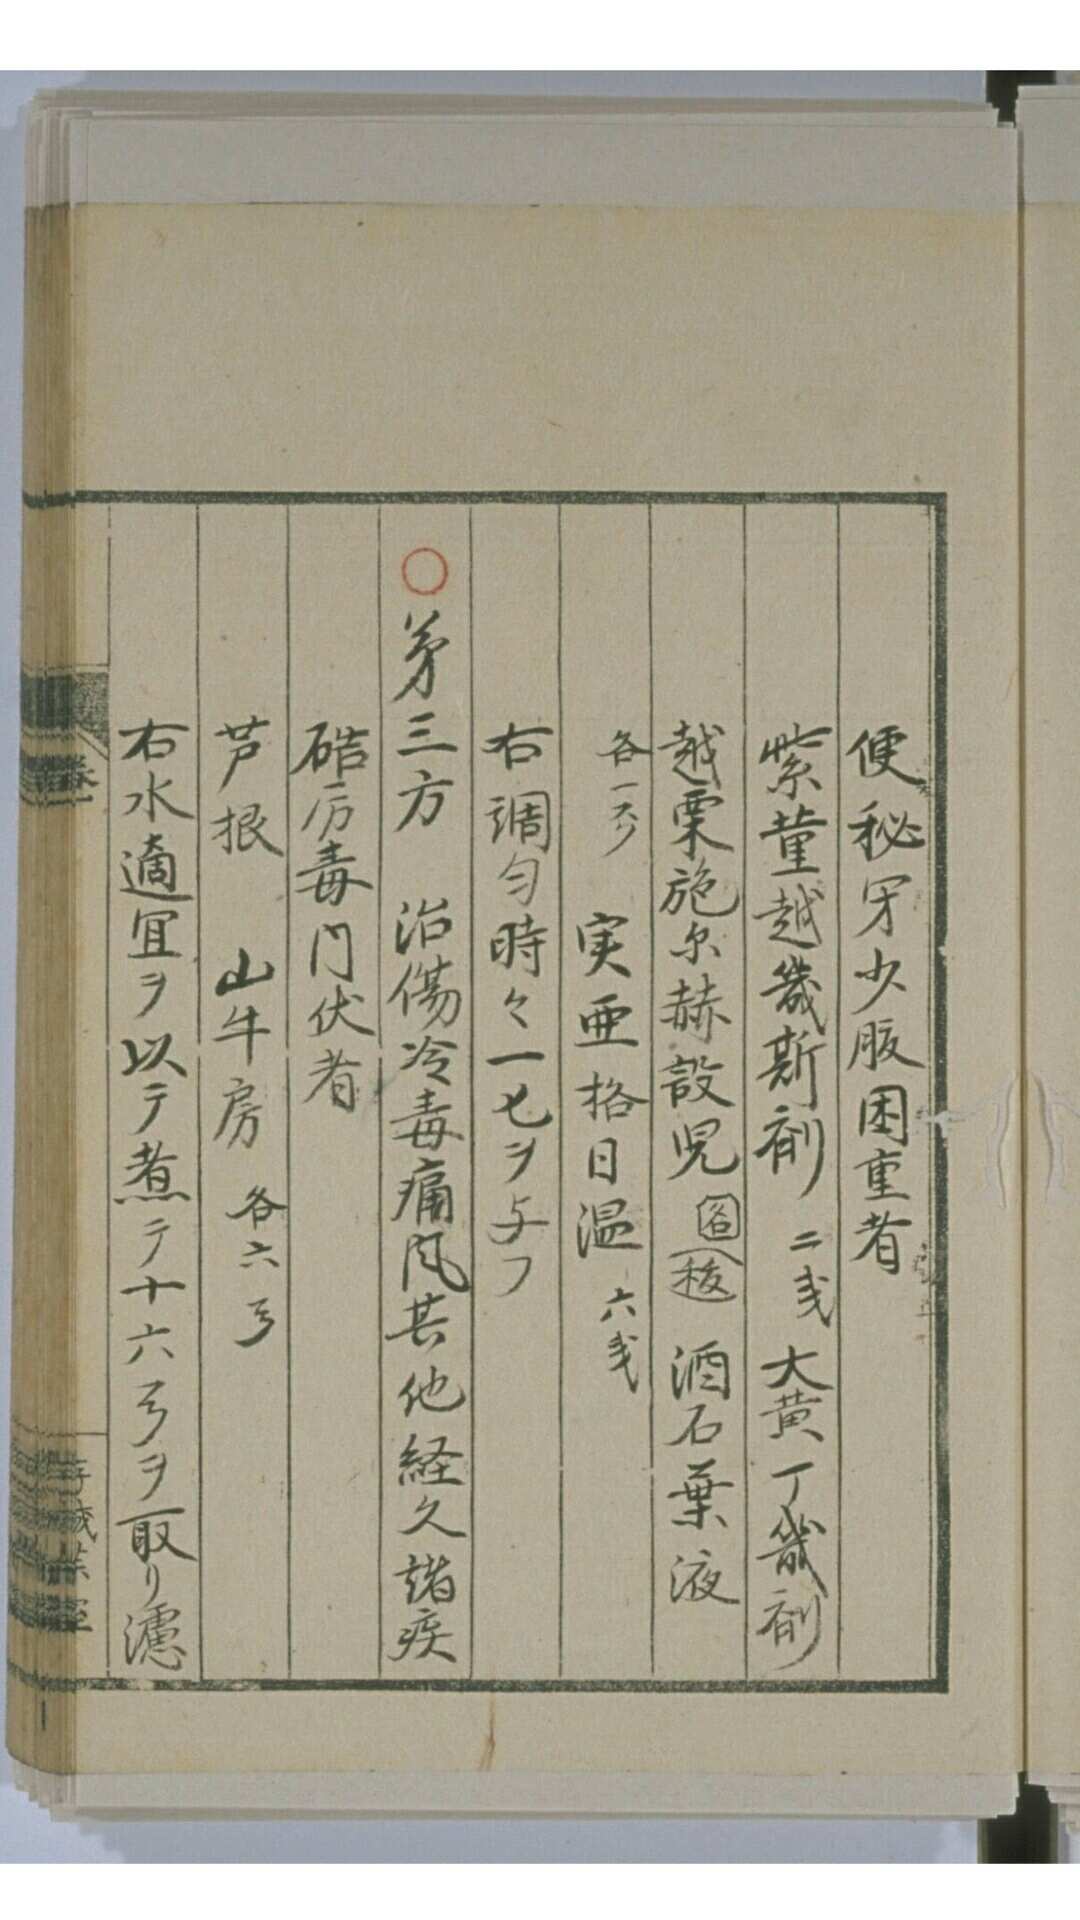 便秘牙少腹困重者
紫菫越幾斯剤 二戔 大黄丁幾剤
越栗施尓赫設児 各稜 酒石葉液
各一 実亜格日温 六戔
右調匀時々一匕ヲ与フ
○ 苐三方 治傷冷毒痛风其他経久諸疾
硞厉毒门伏者
芦根 山牛房 各六
右水適宜ヲ以テ煮テ十六ヲ取リ濾
卷一